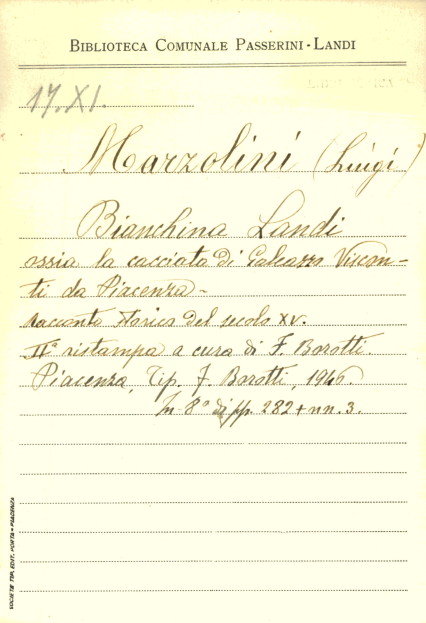 BIBLIOTECA COMUNALE PASSERINI-LANDI
17.XI.
Marzolini (Luigi)
Bianchina Landi
ossia la cacciata di Galeazzo Viscon-
ti da Piacenza -
racconto storico del secolo XV.
IIª ristampa a cura di F. Borotti.
Piacenza, Tip. F. Borotti, 1946.
In-8º di pp. 282 + nn. 3.
SOCIETÀ TIP. EDIT. PORTA - PIACENZA